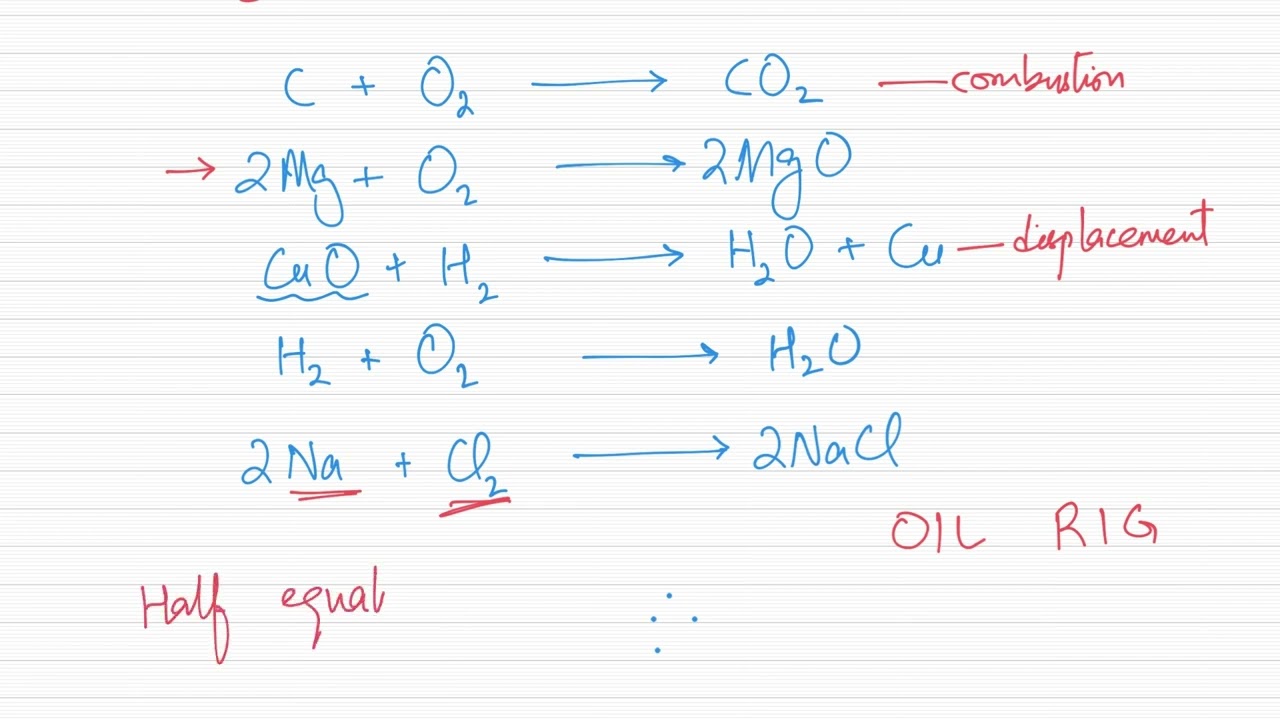 C + O₂ ⟶ CO₂ — combustion
→ 2Mg + O₂ ⟶ 2MgO
CuO + H₂ ⟶ H₂O + Cu — displacement
H₂ + O₂ ⟶ H₂O
2Na + Cl₂ ⟶ 2NaCl
OIL RIG
Half equat